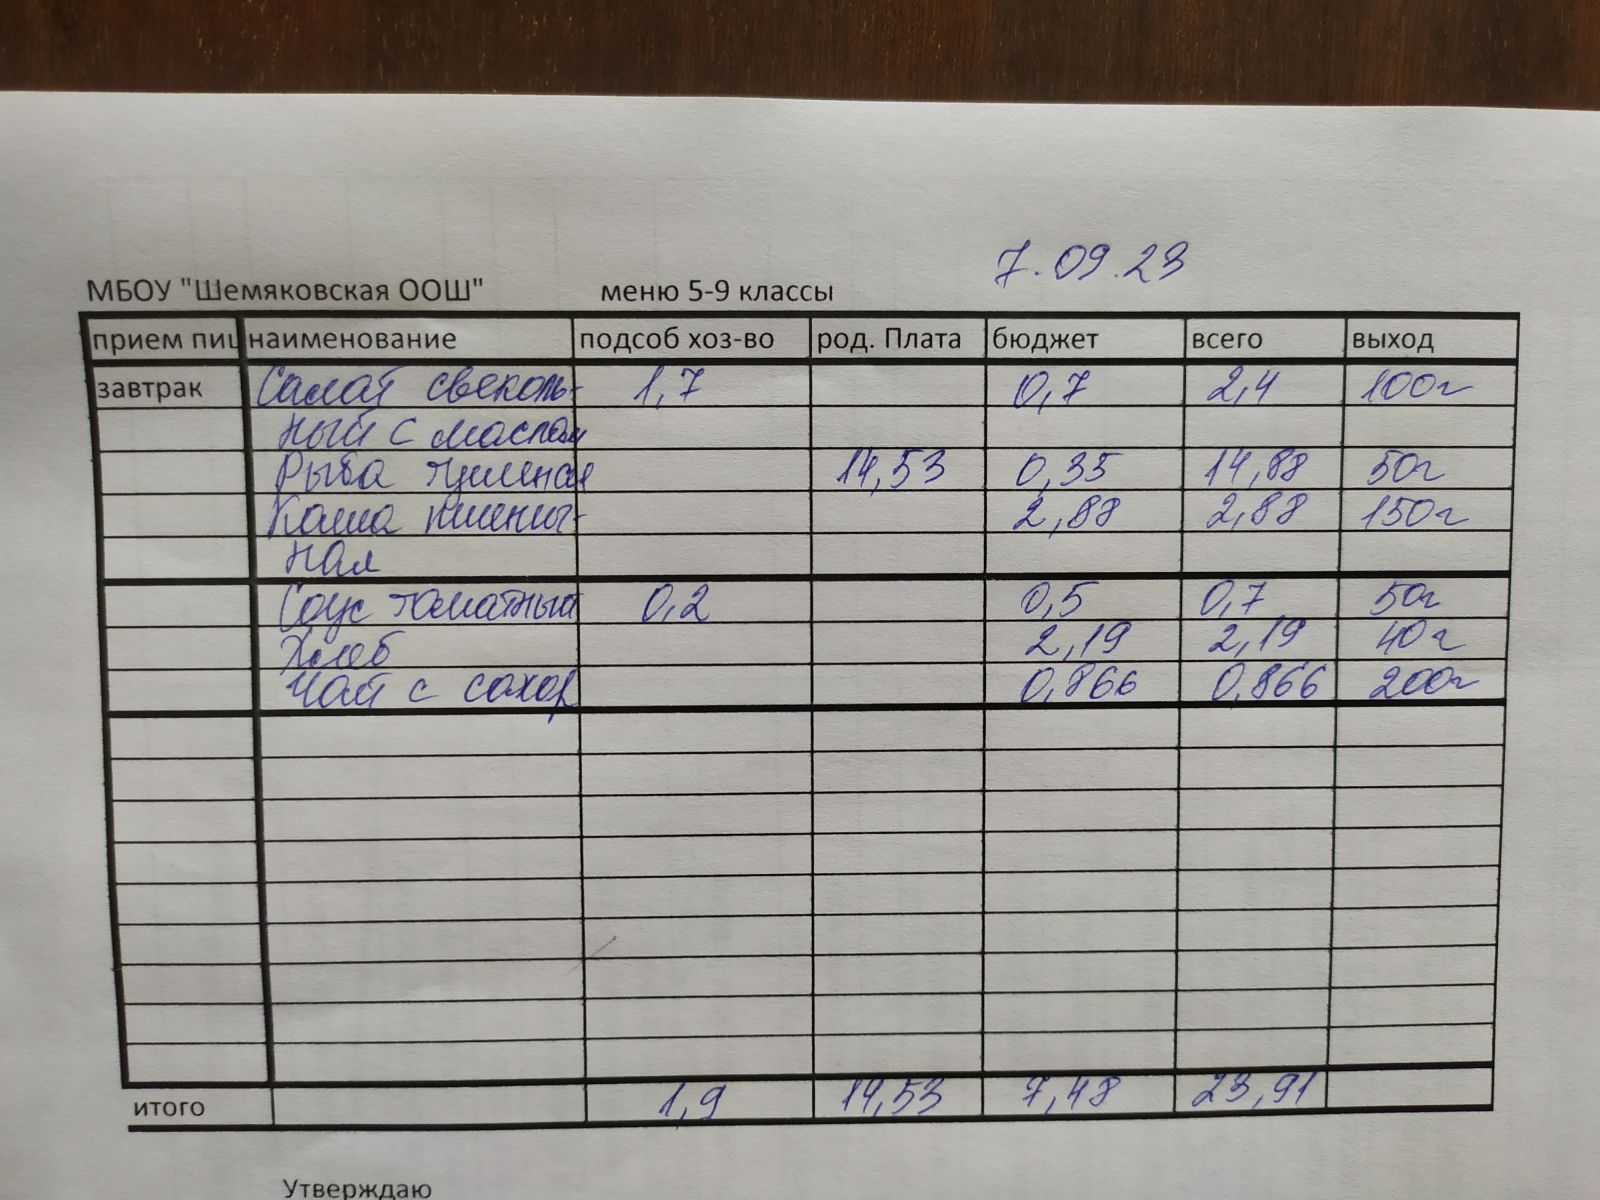 7.09.23
МБОУ "Шемяковская ООШ" меню 5-9 классы
прием пищ наименование подсоб хоз-во род. Плата бюджет всего выход
завтрак Салат свеколь- 1,7 0,7 2,4 100г
ный с маслом
Рыба тушеная 14,53 0,35 14,88 50г
Каша пшенич- 2,88 2,88 150г
ная
Соус томатный 0,2 0,5 0,7 50г
Хлеб 2,19 2,19 40г
Чай с сахар 0,866 0,866 200г
итого 1,9 14,53 7,48 23,91
Утверждаю